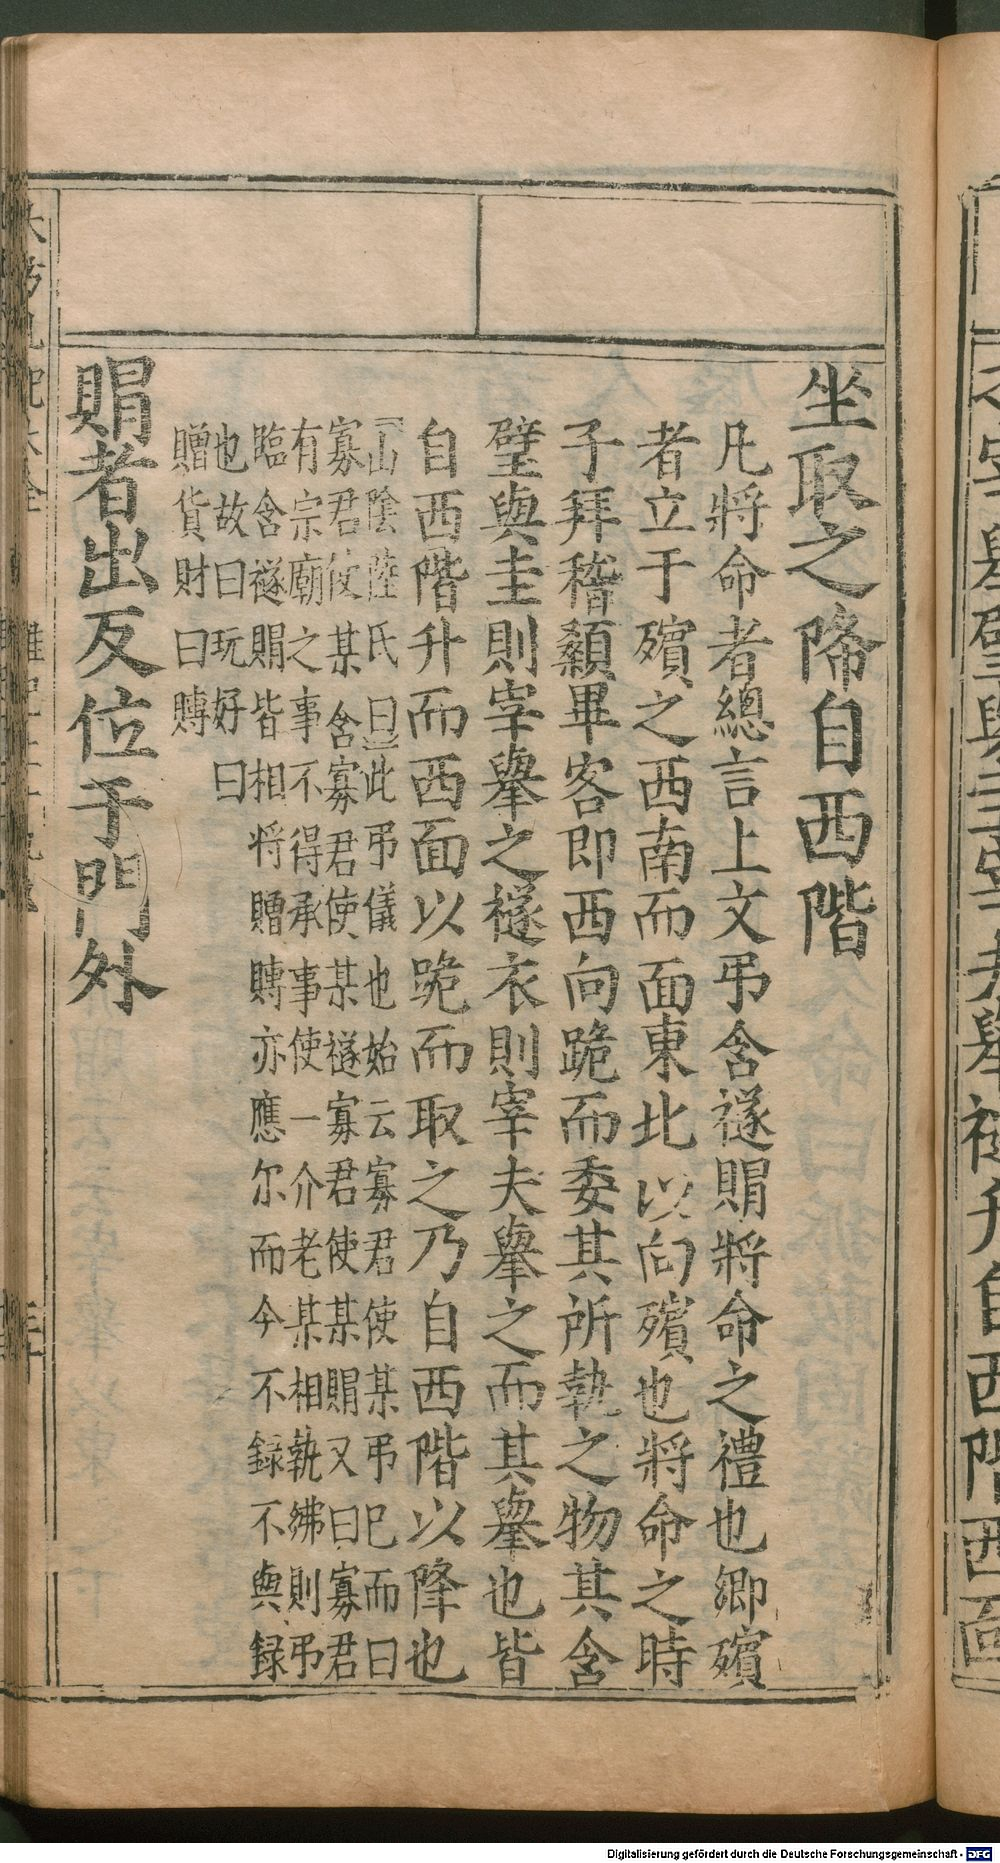 坐取之降自西階
凡將命者總言上文弔含禭賵將命之禮也鄉殯
者立于殯之西南而面東北以向殯也將命之時
子拜稽顙畢客即西向跪而委其所執之物其含
璧與圭則宰舉之禭衣則宰夫舉之而其舉也皆
自西階升而西面以跪而取之乃自西階以降也
山陰陸氏曰此弔儀也始云寡君使某弔已而曰
寡君使某含寡君使某禭寡君使某賵又曰寡君
有宗廟之事不得承事使一介老某相執綍則弔
臨含禭賵皆相將贈賻亦應尔而今不録不與録
也故曰玩好曰
贈貨財曰賻
賵者出反位于門外
Digitalisierung gefördert durch die Deutsche Forschungsgemeinschaft - DFG